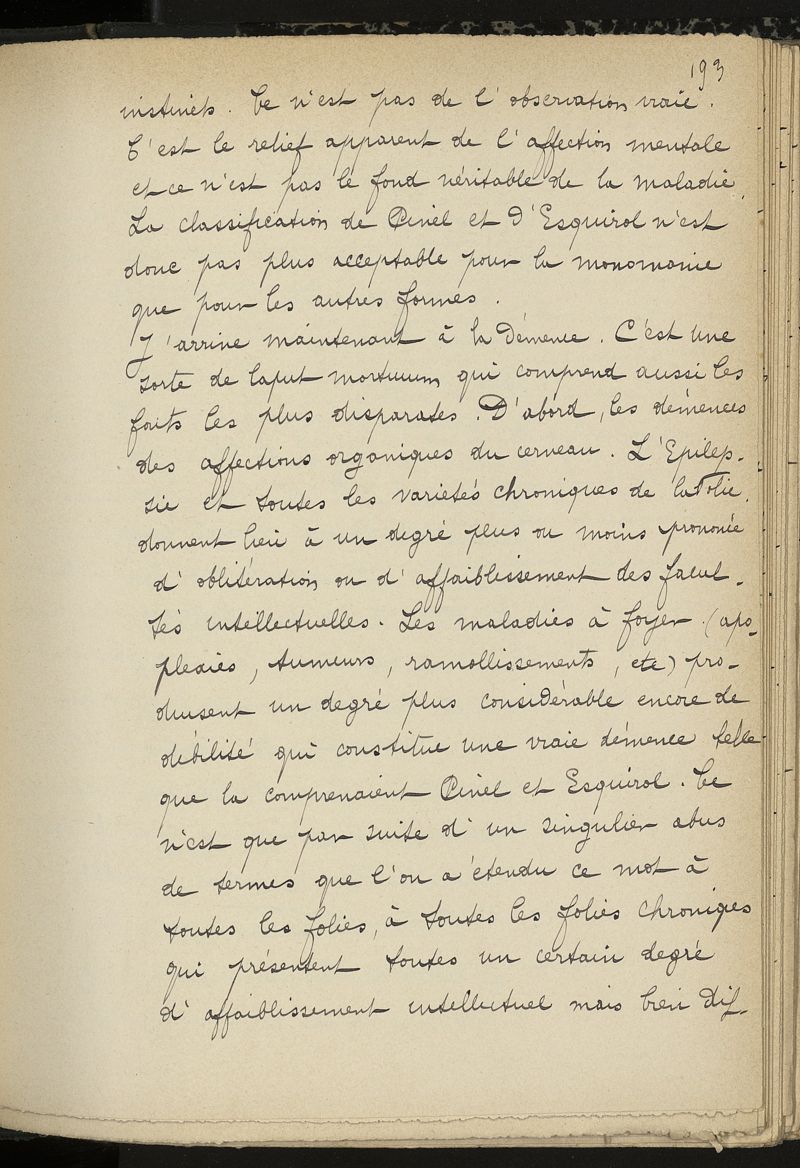 193
instincts. Ce n'est pas de l'observation vraie.
C'est le relief apparent de l'affection mentale
et ce n'est pas le fond véritable de la maladie.
La classification de Pinel et d'Esquirol n'est
donc pas plus acceptable pour la monomanie
que pour les autres formes.
J'arrive maintenant à la Démence. C'est une
sorte de Caput mortuum qui comprend aussi les
faits les plus disparates. D'abord, les démences
des affections organiques du cerveau. L'Epilep-
sie et toutes les variétés chroniques de la Folie
donnent lieu à un degré plus ou moins prononcé
d'oblitération ou d'affaiblissement des facul-
tés intellectuelles. Les maladies à foyer (apo-
plexies, tumeurs, ramollissements, etc) pro-
duisent un degré plus considérable encore de
débilité qui constitue une vraie démence telle
que la comprenaient Pinel et Esquirol. Ce
n'est que par suite d'un singulier abus
de termes que l'on a étendu ce mot à
toutes les folies, à toutes les folies chroniques
qui présentent toutes un certain degré
d'affaiblissement intellectuel mais bien dif-